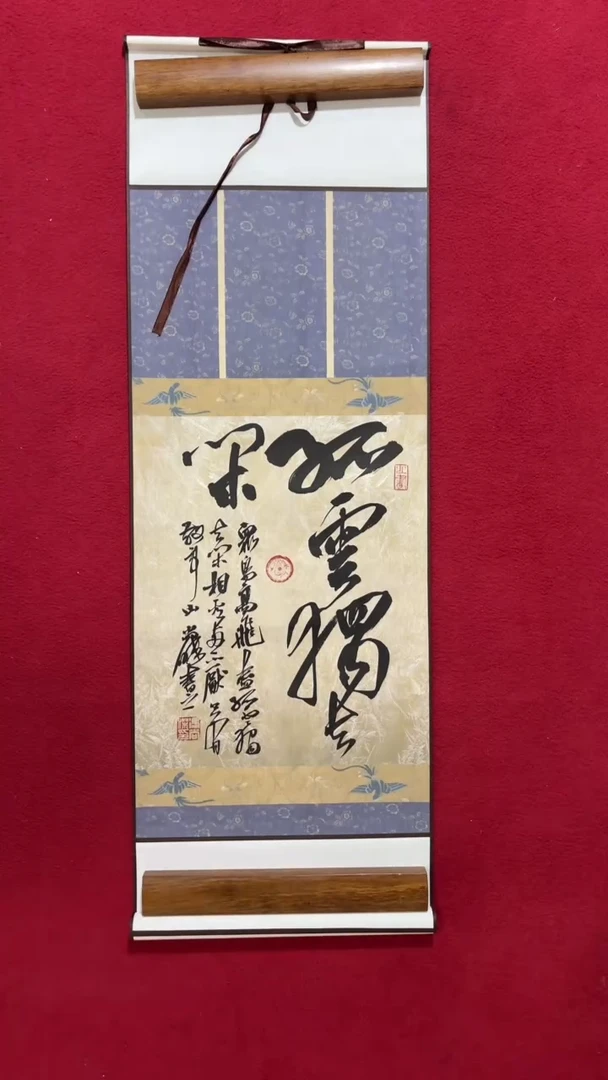 孤雲獨去
閑
眾鳥高飛盡孤雲獨
去閑相看兩不厭只有
敬亭山 書